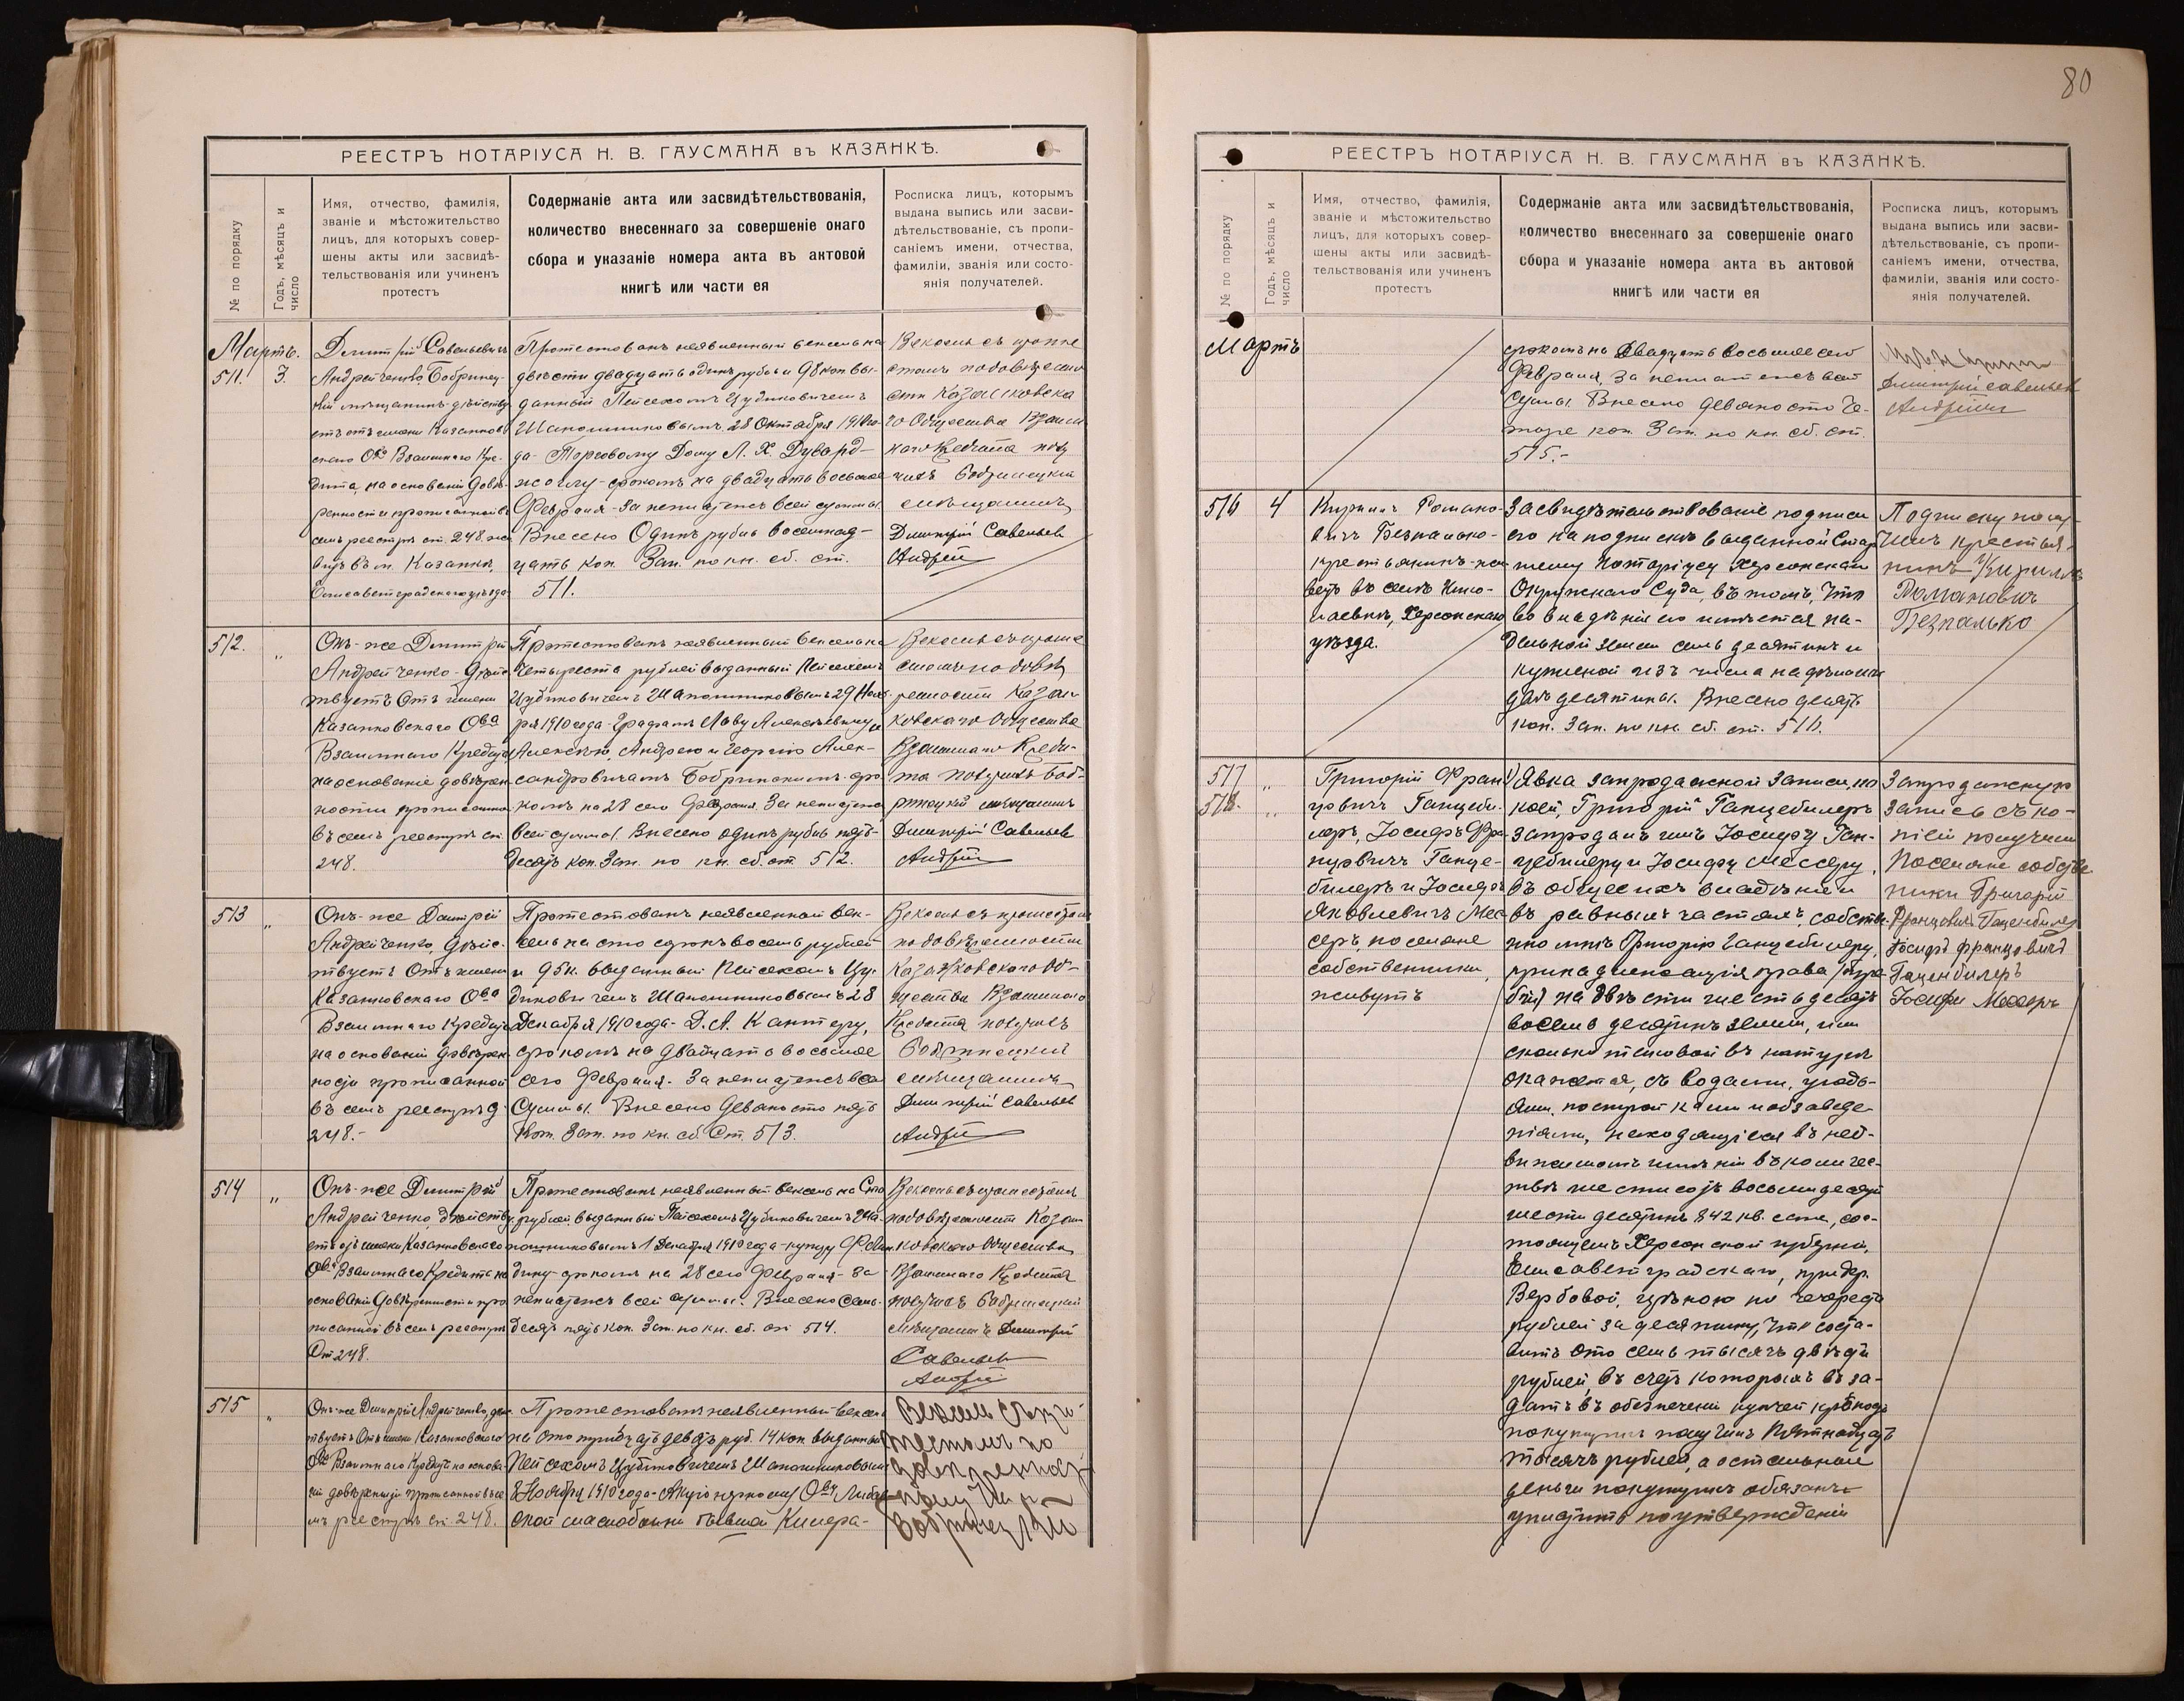 РЕЕСТРЪ НОТАРІУСА Н. В. ГАУСМАНА въ КАЗАНКѢ.
№ по порядку
Годъ, мѣсяцъ и число
Имя, отчество, фамилія,
званіе и мѣстожительство
лицъ, для которыхъ совер-
шены акты или засвидѣ-
тельствованія или учиненъ
протестъ
Содержаніе акта или засвидѣтельствованія,
количество внесеннаго за совершеніе онаго
сбора и указаніе номера акта въ актовой
книгѣ или части ея
Росписка лицъ, которымъ
выдана выпись или засви-
дѣтельствованіе, съ пропи-
саніемъ имени, отчества,
фамиліи, званія или состо-
янія получателей.
Мартъ.
511. 3.
Дмитрій Савельевичъ
Андрейченко Бобринец-
кій мѣщанинъ дѣйству
етъ отъ имени Казанков
скаго Ова Взаимнаго Кре-
дита, на основаніи довѣ-
ренности прописанной въ
семъ реестрѣ ст. 248. жи
вущъ въ м. Казанкѣ,
Елисаветградскаго уѣзда
Протестованъ неявленный вексель на
двѣсти двадцать одинъ рубль и 98 коп вы-
данный Пейсахомъ Цудиковичемъ
Шапошниковымъ 28 Октября 1910 го-
да - Торговому Дому Л. Х. Дувард-
жоглу - срокомъ на двадцать восьмое
Февраля - За неплатежъ всей суммы.
Внесено Одинъ рубль восемнад-
цать коп. Зап. по кн. сб. ст.
511.
Вексель съ проте
стомъ по довѣренно
сти Казанковска
го Общества Взаим
наго Кредита полу
чилъ Бобринецкій
мѣщанинъ
Дмитрій Савельев
Андрей
512. „
Онъ-же Дмитрій
Андрейченко - дѣйс
твуетъ отъ имени
Казанковскаго Ова
Взаимнаго Кредита
на основаніе довѣрен
ности прописанной
въ семъ реестрѣ ст.
248.
Протестованъ неявленный вексель на
четыреста рублей выданный Пейсахомъ
Цудиковичемъ Шапошниковымъ 29 Нояб-
ря 1910 года - Графамъ Льву Алексѣевичу и
Алексѣю, Андрею и Георгію Алек-
сандровичамъ Бобринскимъ - сро-
комъ на 28 сего Февраля. За неплатежъ
всей суммы. Внесено одинъ рубль пять-
десятъ коп. Зап. по кн. сб. ст. 512.
Вексель съ проте
стомъ по довѣ
ренности Казан
ковскаго Общества
Взаимнаго Креди-
та получилъ Боб-
ринецкій мѣщанинъ
Дмитрій Савельев
Андрей
513 „
Онъ-же Дмитрій
Андрейченко, дѣйс-
твуетъ Отъ имени
Казанковскаго Ова
Взаимнаго Кредита
на основаніи довѣрен
ности прописанной
въ семъ реестрѣ ст.
248.-
Протестованъ неявленной век-
сель на сто сорокъ восемь рублей
и 95 к. выданный Пейсахомъ Цу-
диковичемъ Шапошниковымъ 28
Декабря 1910 года - Д. А. Кантеру,
срокомъ на двадцать восьмое
сего Февраля. За неплатежъ всей
Суммы. Внесено девяносто пять
Коп. Зап. по кн. сб. Ст. 513.
Вексель съ протестомъ
по довѣренности
Казанковскаго Об-
щества Взаимнаго
Кредита получилъ
Бобринецкій
мѣщанинъ
Дмитрій Савельев
Андрей
514 „
Онъ-же Дмитрій
Андрейченко, дѣйству
етъ отъ имени Казанковскаго
Ова Взаимнаго Кредита на
основаніи довѣренности про
писанной въ семъ реестрѣ
Ст 248.
Протестованъ неявленный вексель на Сто
рублей, выданный Пейсахомъ Цудиковичемъ Ша-
пошниковымъ 1 Декабря 1910 года - купцу
дику - срокомъ на 28 сего Февраля - За
неплатежъ всей суммы. Внесено Семь-
десятъ пять коп. Зап. по кн. сб. ст 514.
Вексель съ протестомъ
по довѣренности Казан
ковскаго Общества
Взаимнаго Кредита
получилъ Бобринецкій
мѣщанинъ Дмитрій
Савельев
Андрей
515 „
Онъ-же Дмитрій Андрейченко, дѣйс-
твуетъ Отъ имени Казанковскаго
Ова Взаимнаго Кредита на основа-
ніи довѣренности прописанной въ се
мъ реестрѣ ст. 248.
Протестованъ неявленный вексель
на сто тридцать девять руб. 14 коп. выданный
Пейсахомъ Цудиковичемъ Шапошниковымъ
8 Ноября 1910 года - Акціонерному Ову Либав-
ской маслобойни бывшей Килера-
Вексель съ про
тестомъ по
довѣренности
получилъ
Бобринецкій
80
РЕЕСТРЪ НОТАРІУСА Н. В. ГАУСМАНА въ КАЗАНКѢ.
№ по порядку
Годъ, мѣсяцъ и число
Имя, отчество, фамилія,
званіе и мѣстожительство
лицъ, для которыхъ совер-
шены акты или засвидѣ-
тельствованія или учиненъ
протестъ
Содержаніе акта или засвидѣтельствованія,
количество внесеннаго за совершеніе онаго
сбора и указаніе номера акта въ актовой
книгѣ или части ея
Росписка лицъ, которымъ
выдана выпись или засви-
дѣтельствованіе, съ пропи-
саніемъ имени, отчества,
фамиліи, званія или состо-
янія получателей.
Мартъ
срокомъ на Двадцать восьмое сего
Февраля, за неплатежъ всей
Суммы. Внесено девяносто че-
тыре коп. Зап. по кн. сб. ст.
515.-
Дмитрій Савельев
Андрей
516 4
Кирилъ Романо-
вичъ Безпалько-
крестьянинъ - жи
ветъ въ селѣ Нико-
лаевкѣ, Херсонскаго
уѣзда.
Засвидѣтельствованіе подписи
его на подпискѣ выданной Стар
шему Нотаріусу Херсонскаго
Окружнаго Суда, въ томъ, что
во владѣніи его имѣется на-
дѣльной земли семь десятинъ и
купленой изъ числа надѣльной
двѣ десятины. Внесено десять
коп. Зап. по кн. сб. ст. 516.
Подписку полу-
чилъ крестья-
нинъ Кирилъ
Романовичъ
Безпалько
517 „
518. „
Григорій Фран
цовичъ Ганцеби-
леръ, Іосифъ Фран
цовичъ Ганце-
билеръ и Іосифъ
Яковлевичъ Мес-
серъ, поселяне
собственники,
живутъ
1) Явка запродажной записи, по
коей, Григорій Ганцебилеръ
запродалъ имъ Іосифу Ган-
цебилеру и Іосифу Мессеру,
въ общее ихъ владѣніе и
въ равныхъ частяхъ, собствен-
но ему Григорію Ганцебилеру,
принадлежащія права
на двѣсти шестьдесятъ
восемь десятинъ земли, или
сколько таковой въ натурѣ
окажется, съ водами, угодь-
ями, постройками и обзаведе-
ніями, находящіеся въ нед-
вижимомъ имѣніи въ количес-
твѣ шестисотъ восьмидесяти
шести десятинъ 842 кв. саж., сос-
тоящемъ Херсонской губерніи,
Елисаветградскаго, при дер.
Вербовой, цѣною по четыреста
рублей за десятину, что соста-
витъ сто семь тысячъ двѣсти
рублей, въ счетъ которыхъ въ за-
датъ въ обезпеченіи купчей крѣпости
покупщикъ получилъ Пятнадцать
тысячъ рублей, а остальныя
деньги покупщикъ обязанъ
уплатить по утвержденіи
Запродажную
запись съ ко-
піей получили
Поселяне собстве
ники Григорій
Францовичъ Гаценбилеръ
Іосифъ Францовичъ
Гаценбилеръ
Іосифъ Мессеръ